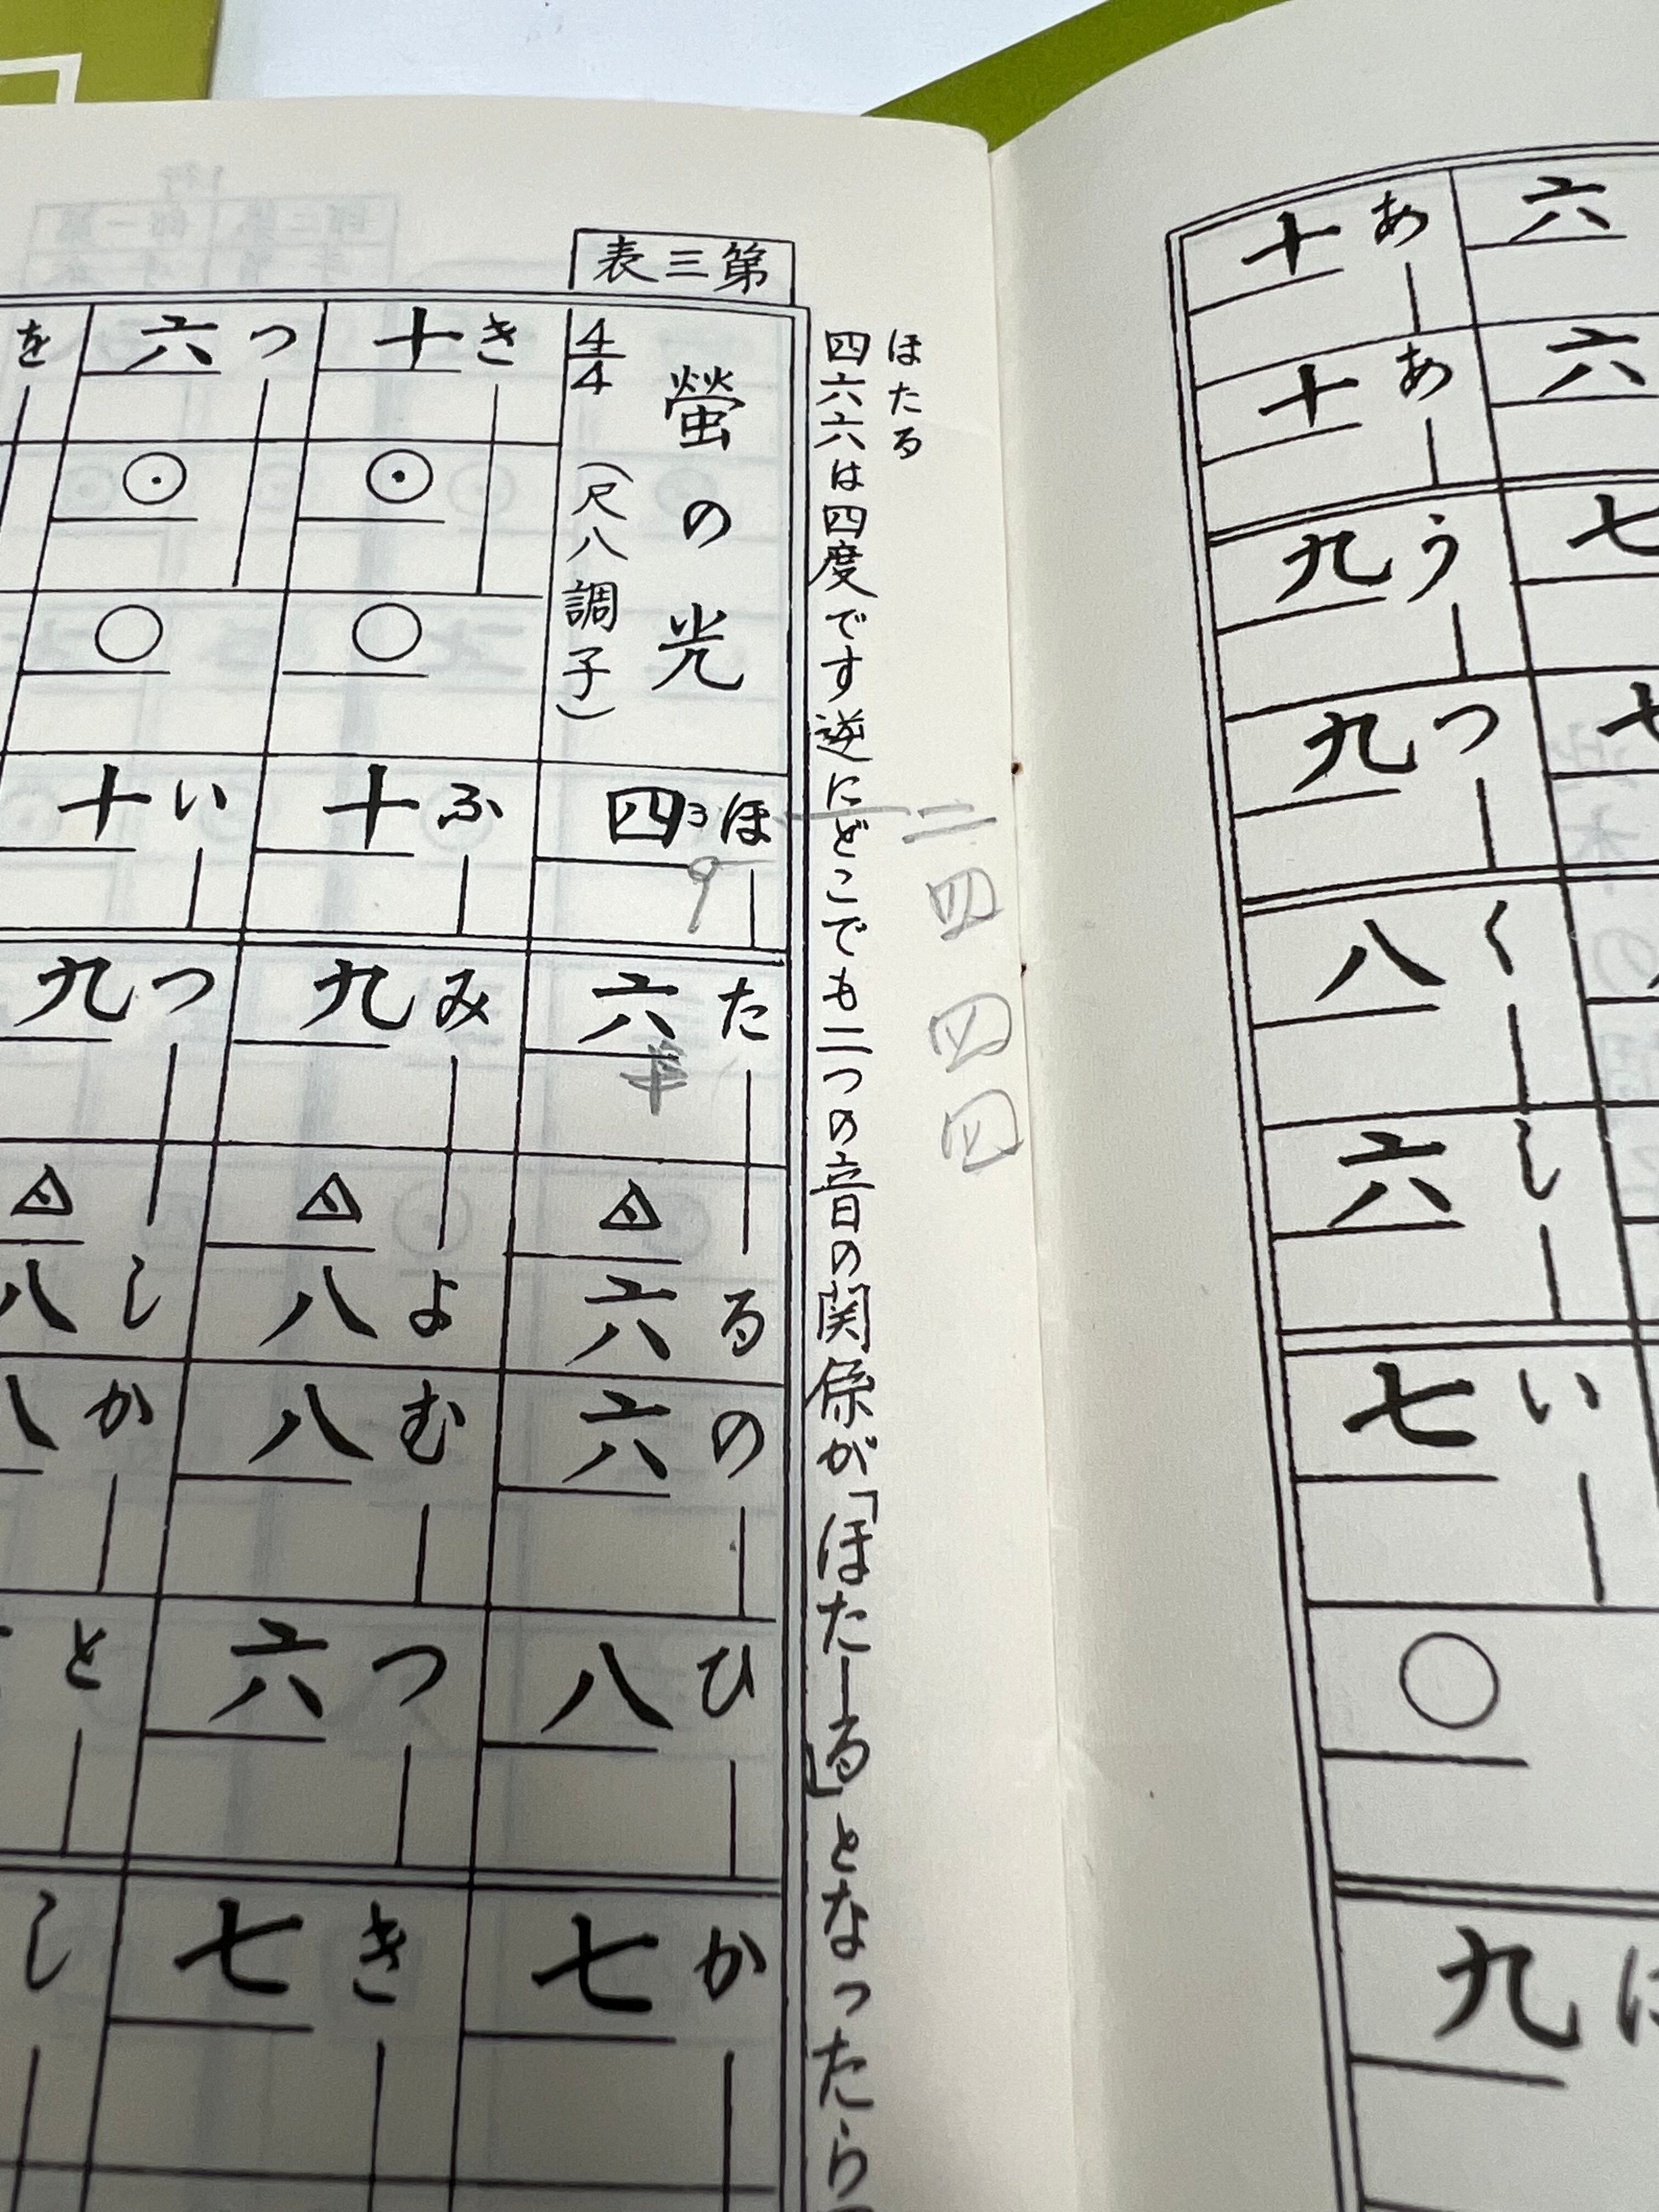 六
六
七
あ十
あ十
う九
つ九
く八
し六
い七
○
九
ほたる
四六六は四度です逆にどこでも二つの音の関係が「ほたーる」となったら
二四四四
第三表
螢の光
4/4
(尺八調子)
ほ四ヨ
9
た六
半
る六
の六
ひ八
か七
き十
ふ十
み九
よ八
む八
つ六
き七
つ六
い十
つ九
し八
か八
と
し
を